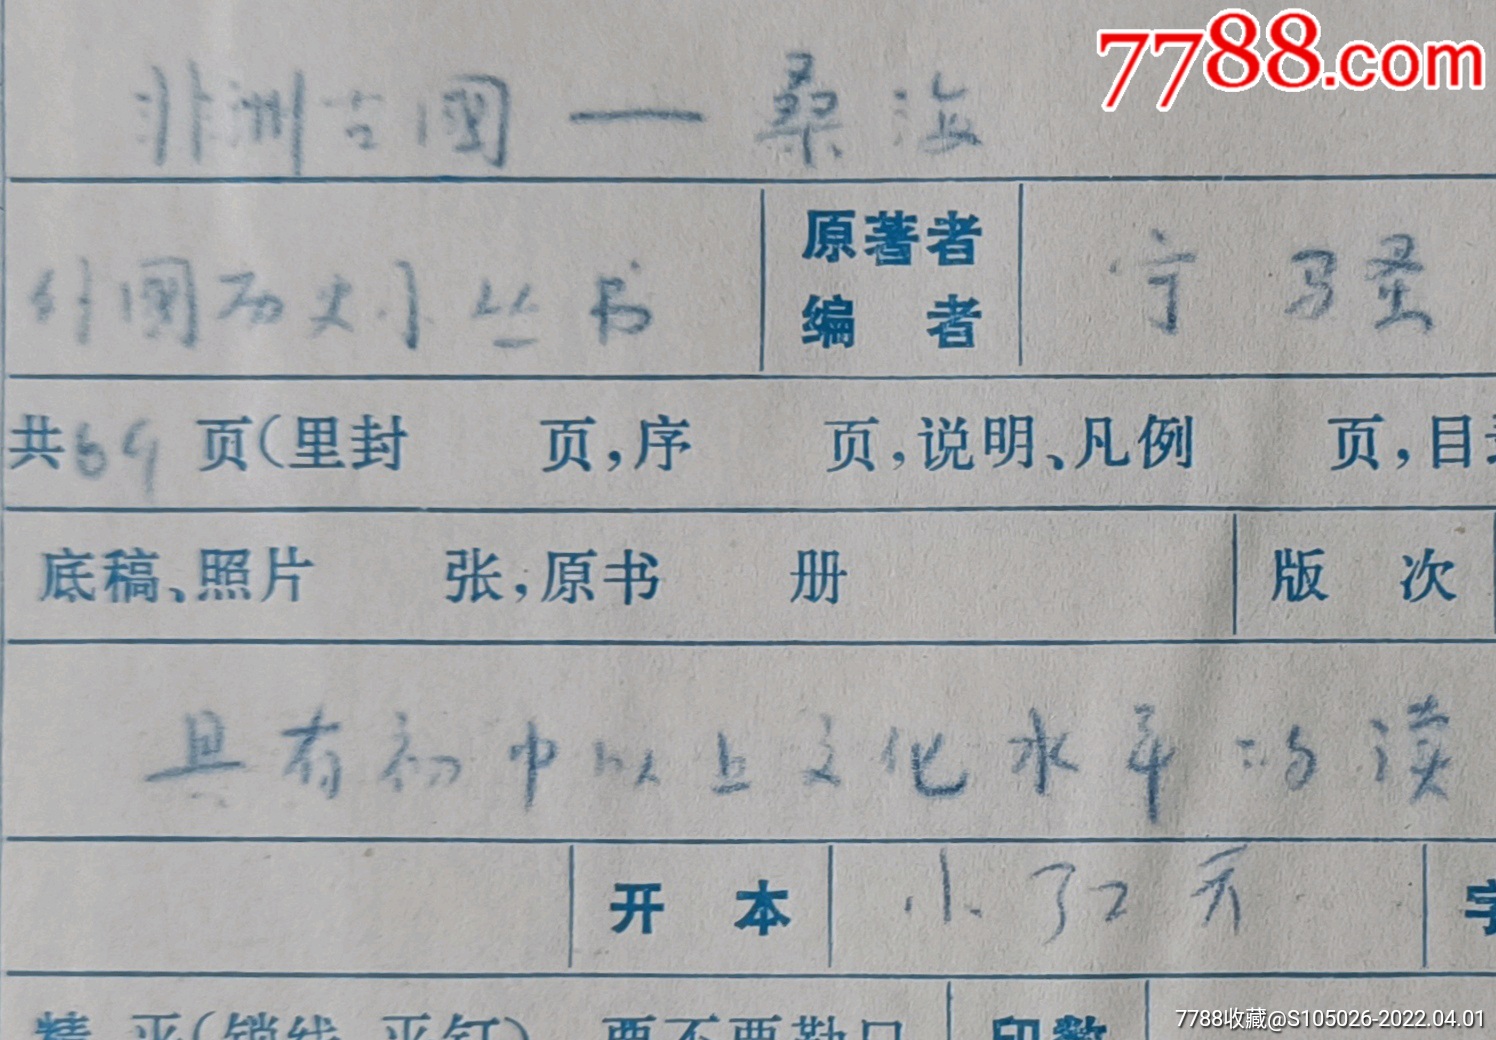 7788.com
非洲古國——桑海
外國历史小丛书
原著者
编 者
宁 骚 著
共69页(里封 页,序 页,说明、凡例 页,目录
底稿、照片 张,原书 册
版 次
具有初中以上文化水平的读
开 本
小32开
字
精、平(锁线、平钉) 要不要勒口
印数
7788收藏@S105026-2022.04.01